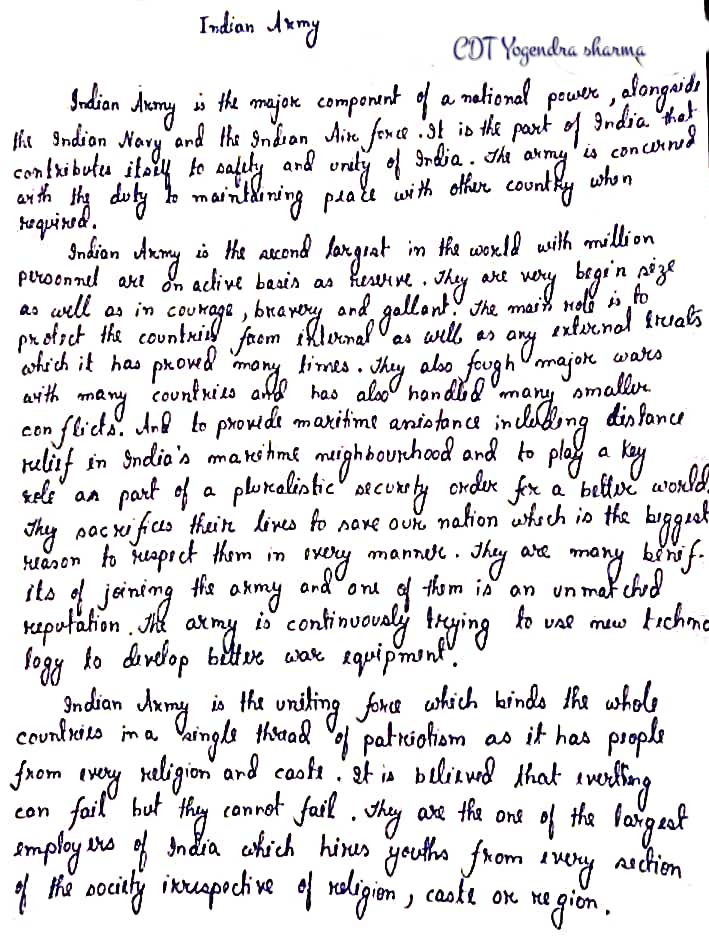 Indian Army
CDT Yogendra sharma
Indian Army is the major component of a national power, alongside
the Indian Navy and the Indian Air force. It is the part of India that
contributes itself to safety and unity of India. The army is concerned
with the duty to maintaining peace with other country when
required.
Indian Army is the second largest in the world with million
personnel are on active basis as reserve. They are very begin size
as well as in courage, bravery and gallant. The main role is to
protect the countries from internal as well as any external treats
which it has proved many times. They also fough major wars
with many countries and has also handled many smaller
conflicts. And to provide maritime assistance including distance
relief in India's maritime neighbourhood and to play a key
role as part of a pluralistic security order for a better world.
They sacrifices their lives to save our nation which is the biggest
reason to respect them in every manner. They are many benif-
its of joining the army and one of them is an unmatched
reputation. The army is continuously trying to use new techno
logy to develop better war equipment.
Indian Army is the uniting force which binds the whole
countries in a single thread of patriotism as it has people
from every religion and caste. It is believed that everthing
can fail but they cannot fail. They are the one of the largest
employers of India which hires youths from every section
of the society irrespective of religion, caste or region.